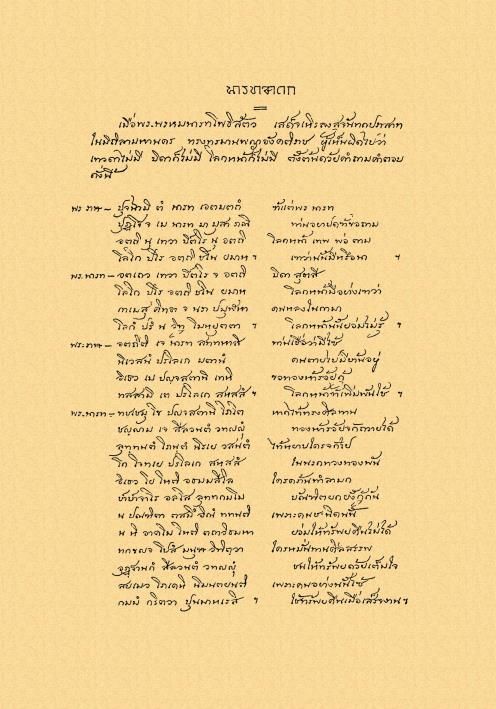 นารทชาดก
เมื่อพระพรหมนารทโพธิสัตว์ เสด็จเหาะลงสู่จันทกปราสาท
ในมิถิลามหานคร ทรงทรมานพญาอังคติราช ผู้เห็นผิดไปว่า
เทวดาไม่มี บิดาก็ไม่มี โลกหน้าก็ไม่มี ดั่งต้นด้วยคำถามคำตอบ
ดังนี้
พระราชา – ปุจฺฉามิ ตํ นารท เอตมตฺถํ ข้าแต่พระนารท
ปุฏฺโฐ จ เม นารท มา มุสา ภณิ ท่านอย่าปดข้าขอถาม
อตฺถิ นุ เทวา ปิตโร นุ อตฺถิ โลกหน้า เทพ พ่อ ตาม
โลโก ปโร อตฺถิ ชโน ยมาห ฯ เขาว่านั้นมีหรือนา ฯ
พระนารท – อตฺเถว เทวา ปิตโร จ อตฺถิ บิดา สุรสี
โลโก ปโร อตฺถิ ชโน ยมาห โลกหน้ามีอย่างเขาว่า
กาเมสุ คิทฺธา จ นรา ปมูฬฺหา คนหลงในกามา
โลกํ ปรํ น วิทู โมหยุตฺตา ฯ โลกหน้านั้นย่อมไม่รู้ ฯ
พระราชา – อตฺถีติ เจ นารท สทฺทหาสิ ท่านเชื่อว่ามีใช้
นิเวสนํ ปรโลเก มตานํ คนตายไปมีที่อยู่
อิเธว เม ปญฺจสตานิ เทหิ ขอทองห้าร้อยกู้
ทสฺสามิ เต ปรโลเก สหสฺสํ ฯ โลกหน้าข้าเพิ่มพันใช้ ฯ
พระนารท – ทชฺเชมุ โข ปญฺจสตานิ โภโต หากได้ทรงศีลทาน
ชญฺญาม เจ สีลวนฺตํ วทญฺญุํ ทองห้าร้อยจักถวายได้
ลุทฺทนฺตํ โภนฺตํ นิรเย วสนฺตํ ใต้หยาบใครจักไป
โก โจทเย ปรโลเก สหสฺสํ ในนรกทวงทองพัน
อิเธว โย โหติ อธมฺมสีโล ใครอธรรม์ทำลามก
ปาปาจาโร อลโส ลุทฺทกมฺโม บัณฑิตยกยังกู้กัน
น ปณฺฑิตา ตสฺมึ อิณํ ททนฺติ เพราะคนชนิดนั้น
น หิ อาคโม โหติ ตถาวิธมฺหา ย่อมให้ทรัพย์คืนไม่ได้
ทกฺขญฺจ โปสํ มนุชา วิทิตฺวา ใครหมั่นทานศีลสรรพ
อุฏฺฐานกํ สีลวนฺตํ วทญฺญุํ ชนให้ทรัพย์ด้วยเต็มใจ
สยเมว โภเคหิ นิมนฺตยนฺติ เพราะคนอย่างนั้นใช้
กมฺมํ กริตฺวา ปุนมาหเรสิ ฯ ใช้ทรัพย์คืนเมื่อเสร็จงาน ฯ